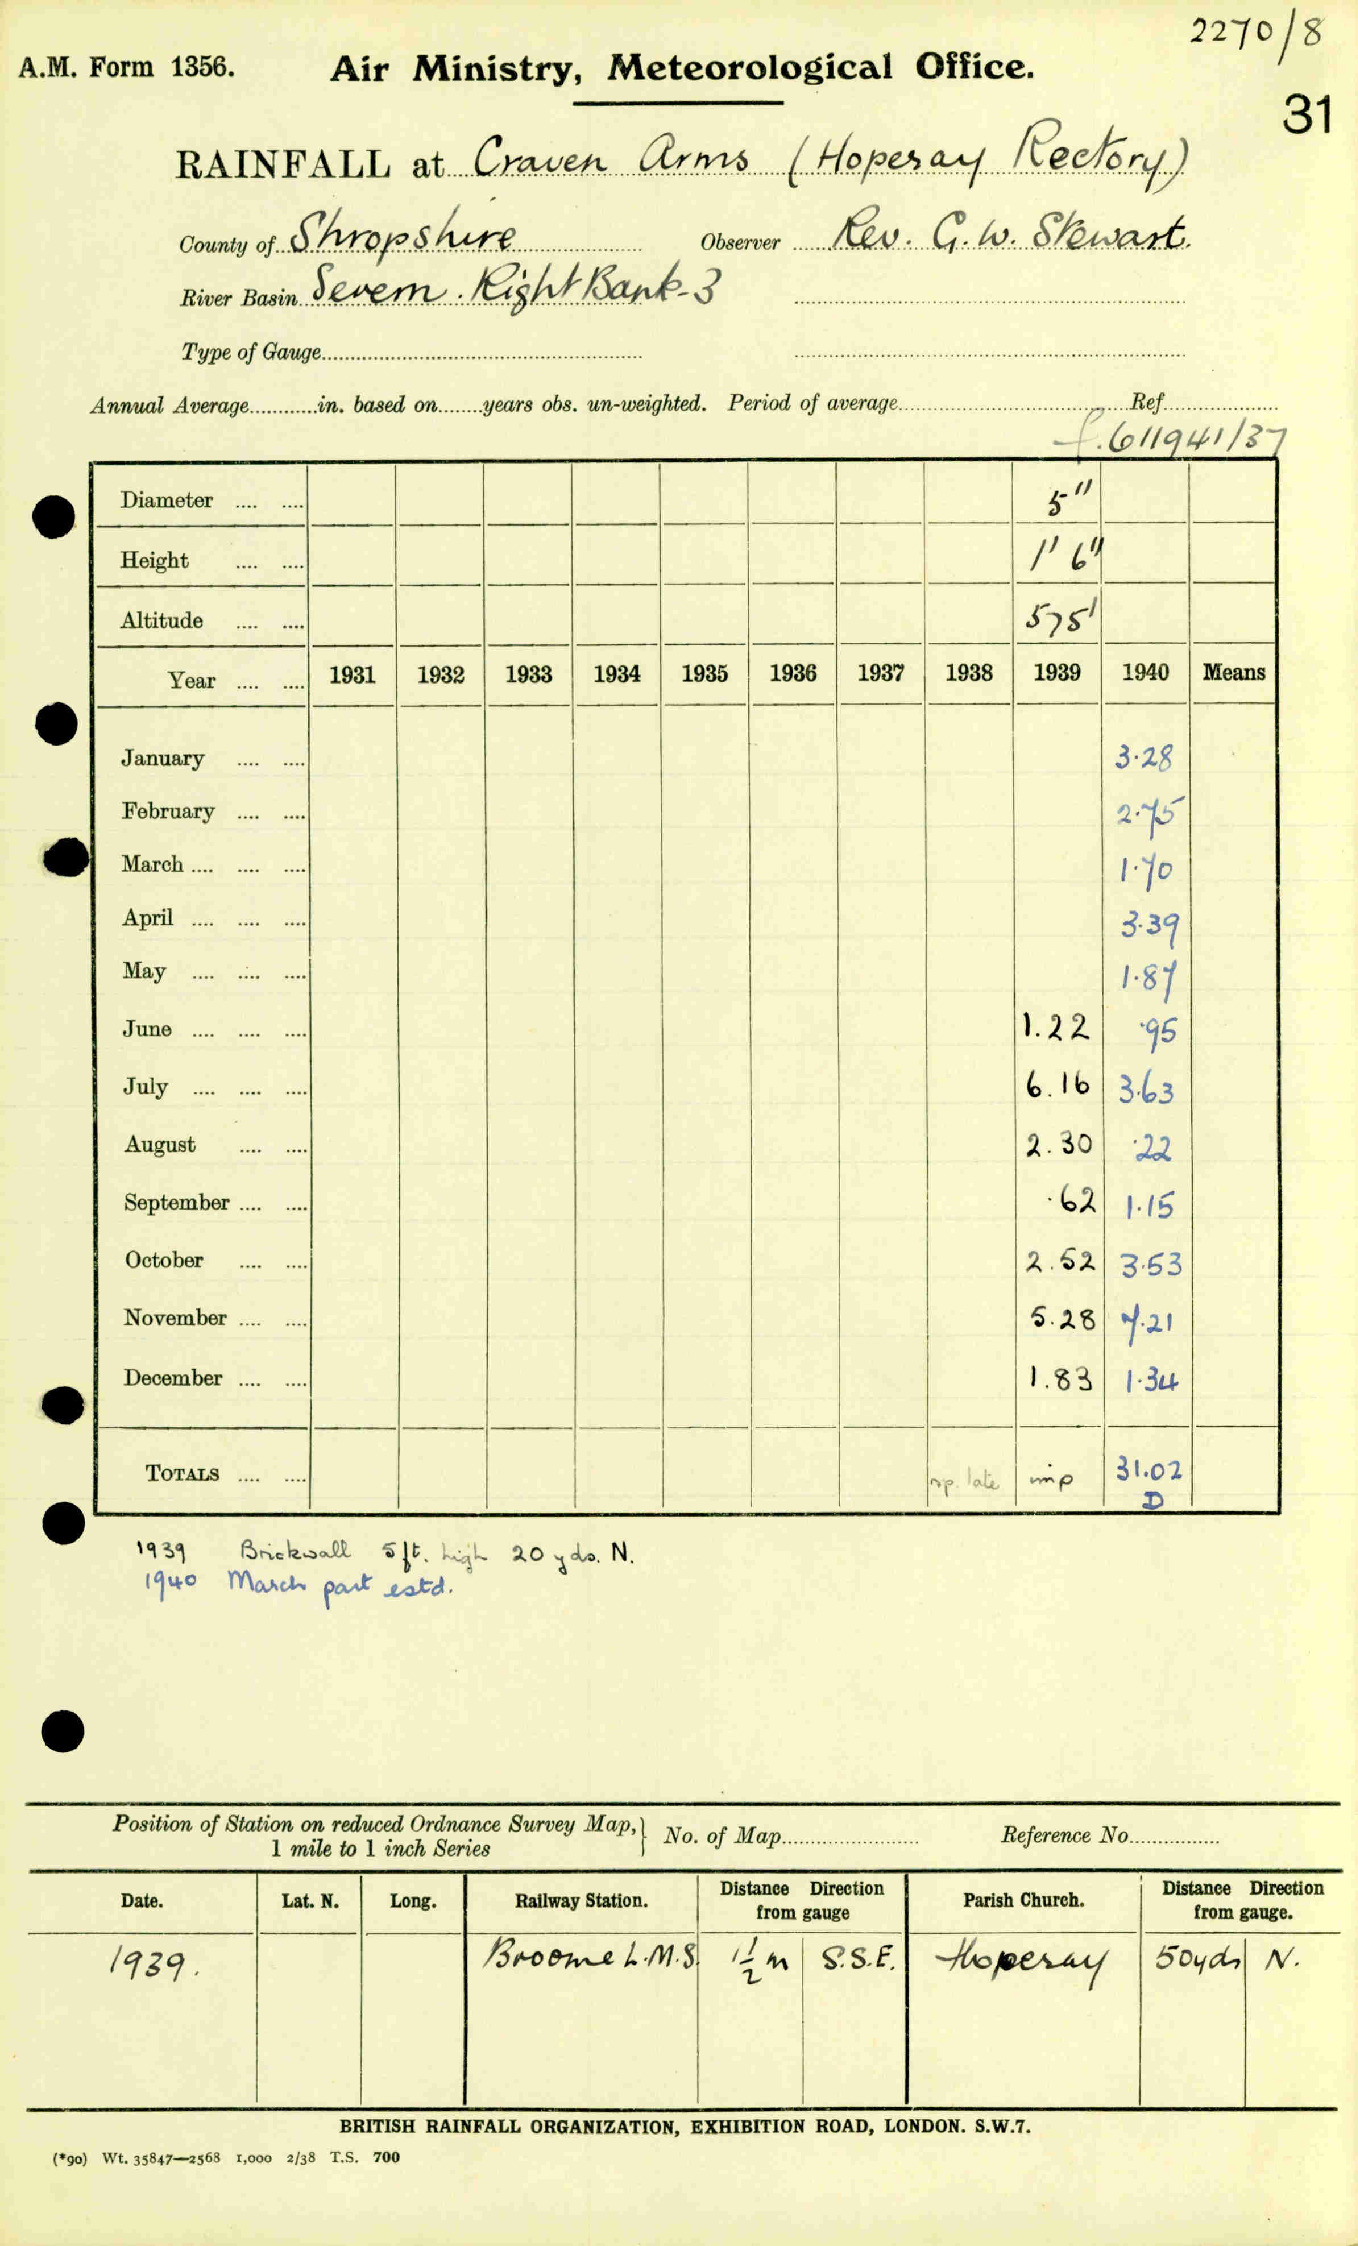 2270/8
A.M. Form 1356. Air Ministry, Meteorological Office.
31
RAINFALL at Craven Arms (Hopesay Rectory)
County of Shropshire Observer Rev. G. W. Stewart.
River Basin Severn. Right Bank-3
Type of Gauge
Annual Average in. based on years obs. un-weighted. Period of average Ref.
f.611941/37
Diameter 5"
Height 1' 6"
Altitude 575'
Year 1931 1932 1933 1934 1935 1936 1937 1938 1939 1940 Means
January 3.28
February 2.75
March 1.70
April 3.39
May 1.87
June 1.22 .95
July 6.16 3.63
August 2.30 .22
September .62 1.15
October 2.52 3.53
November 5.28 7.21
December 1.83 1.34
TOTALS late imp 31.02
D
1939 Brickwall 5 ft. high 20 yds. N.
1940 March part estd.
Position of Station on reduced Ordnance Survey Map, 1 mile to 1 inch Series } No. of Map Reference No.
Date. Lat. N. Long. Railway Station. Distance Direction from gauge Parish Church. Distance Direction from gauge.
1939. Broome L.M.S. 1½ m S.S.E. Hopesay 50yds N.
BRITISH RAINFALL ORGANIZATION, EXHIBITION ROAD, LONDON. S.W.7.
(*90) Wt. 35847—2568 1,000 2/38 T.S. 700